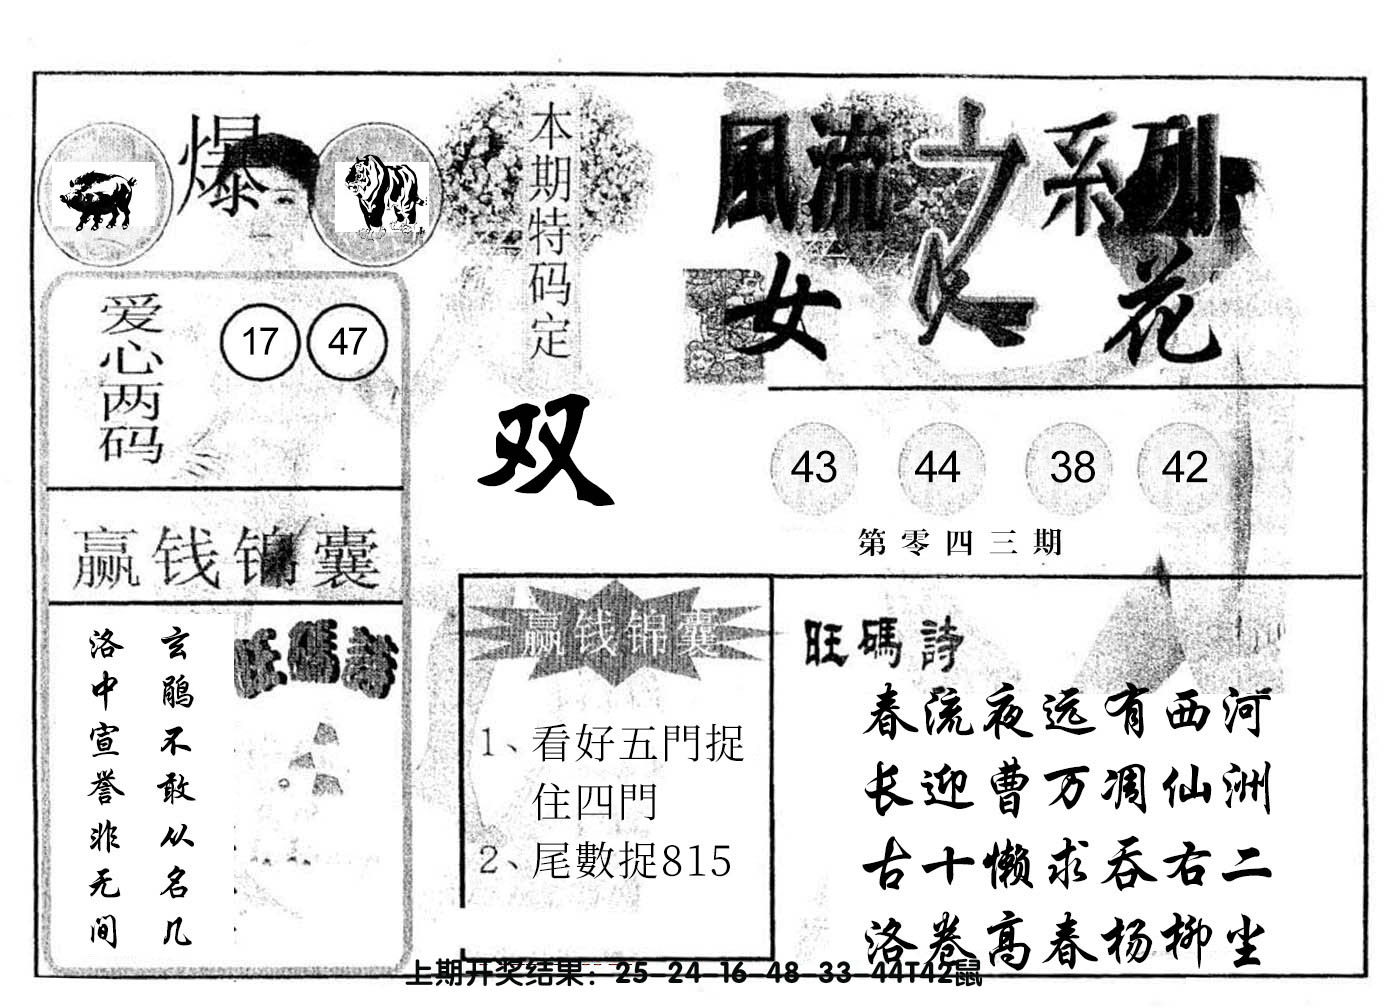 爆
本期特码定
双
風流之系列
女人花
爱心两码
17 47
43 44 38 42
第零四三期
赢钱锦囊
玄鹃不敢从名几
洛中宣誉非无间
旺碼詩
赢钱锦囊
1、看好五門捉
住四門
2、尾數捉815
旺碼詩
春流夜远有西河
长迎曹万凋仙洲
古十懒求吞右二
洛卷高春杨柳坐
上期开奖结果：25-24-16-48-33-44T42鼠